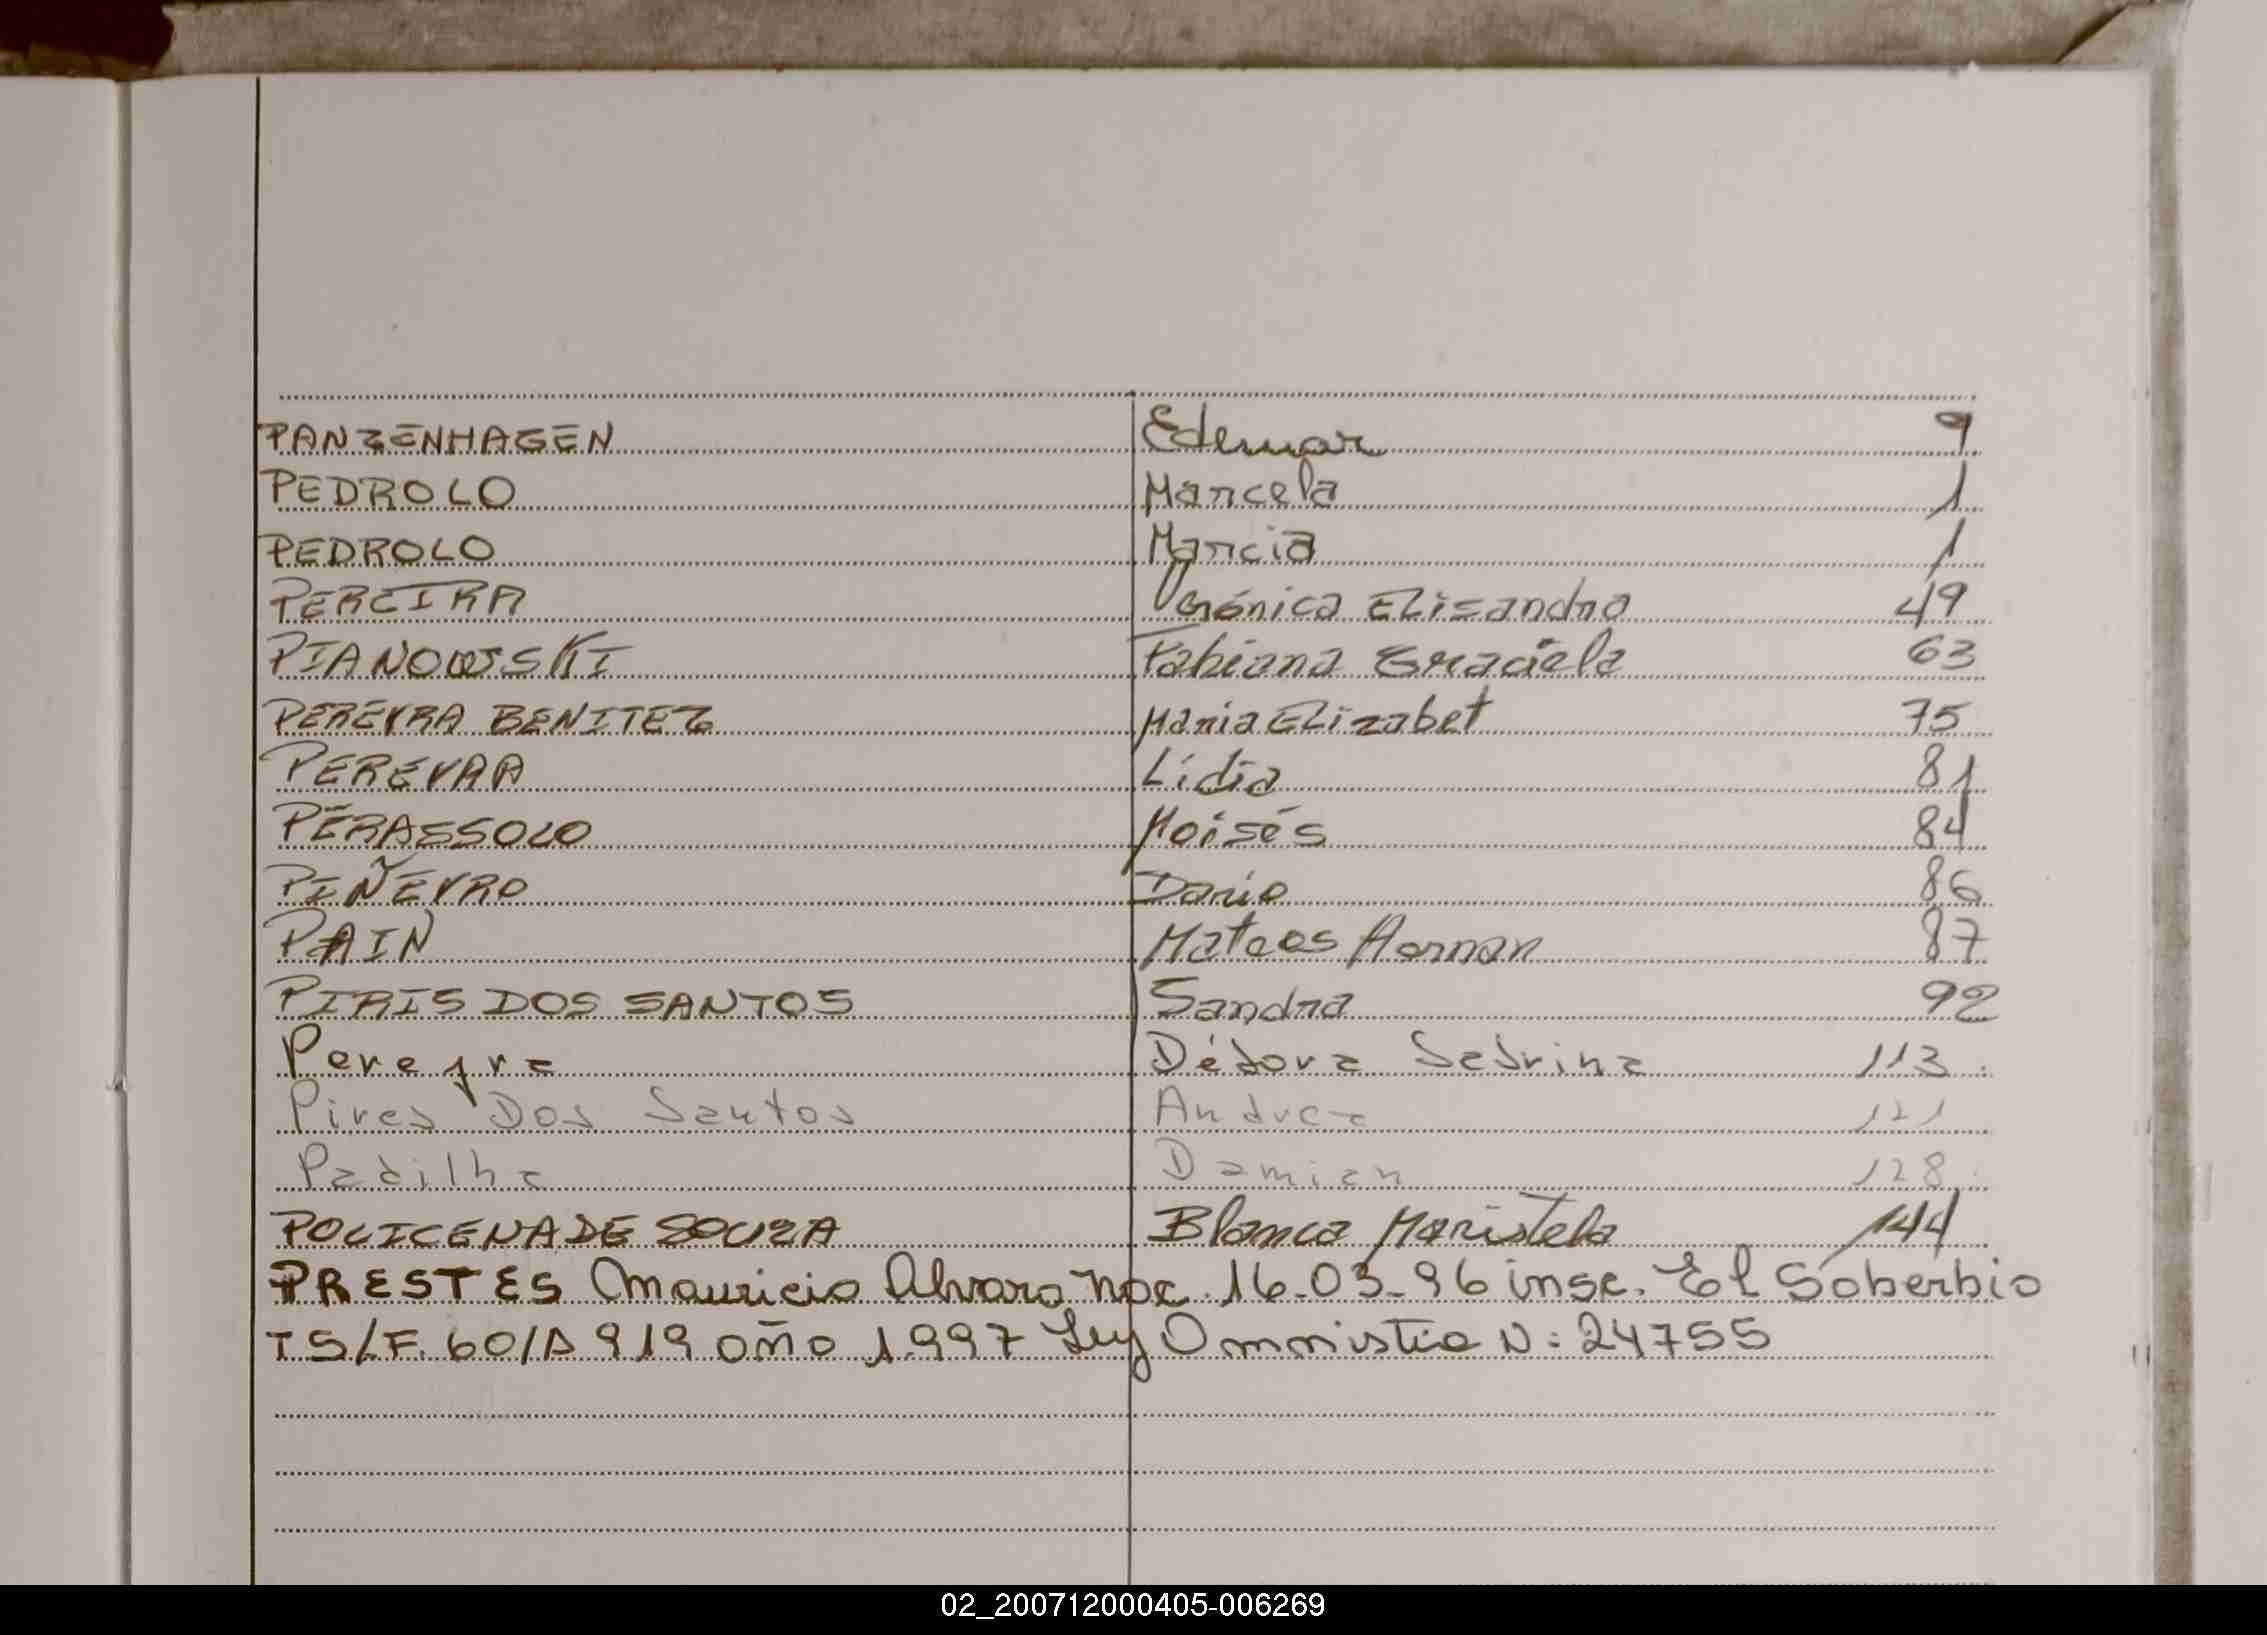 PANZENHAGEN Edemar 9
PEDROLO Marcela 1
PEDROLO Marcia 1
PEREIRA Verónica Elisandra 49
PIANOWSKI Fabiana Graciela 63
PEREYRA BENITEZ Maria Elizabet 75
PEREYRA Lidia 81
PERASSOLO Moisés 84
PIÑEYRO Dario 86
PAIN Mateos Hernan 87
PIRIS DOS SANTOS Sandra 92
Pereyra Débora Sabrina 113
Pires Dos Santos Andrea 121
Padilha Damian 128
POLICENA DE SOUZA Blanca Maristela 144
PRESTES Mauricio Alvaro nac. 16-03-96 insc. El Soberbio
TS/F. 60/A 919 año 1.997 Ley Omnistia N: 24755
02_200712000405-006269